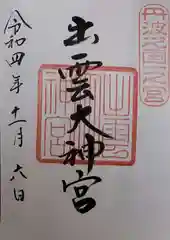 丹波國一之宮
出雲大神宮
令和四年十一月六日